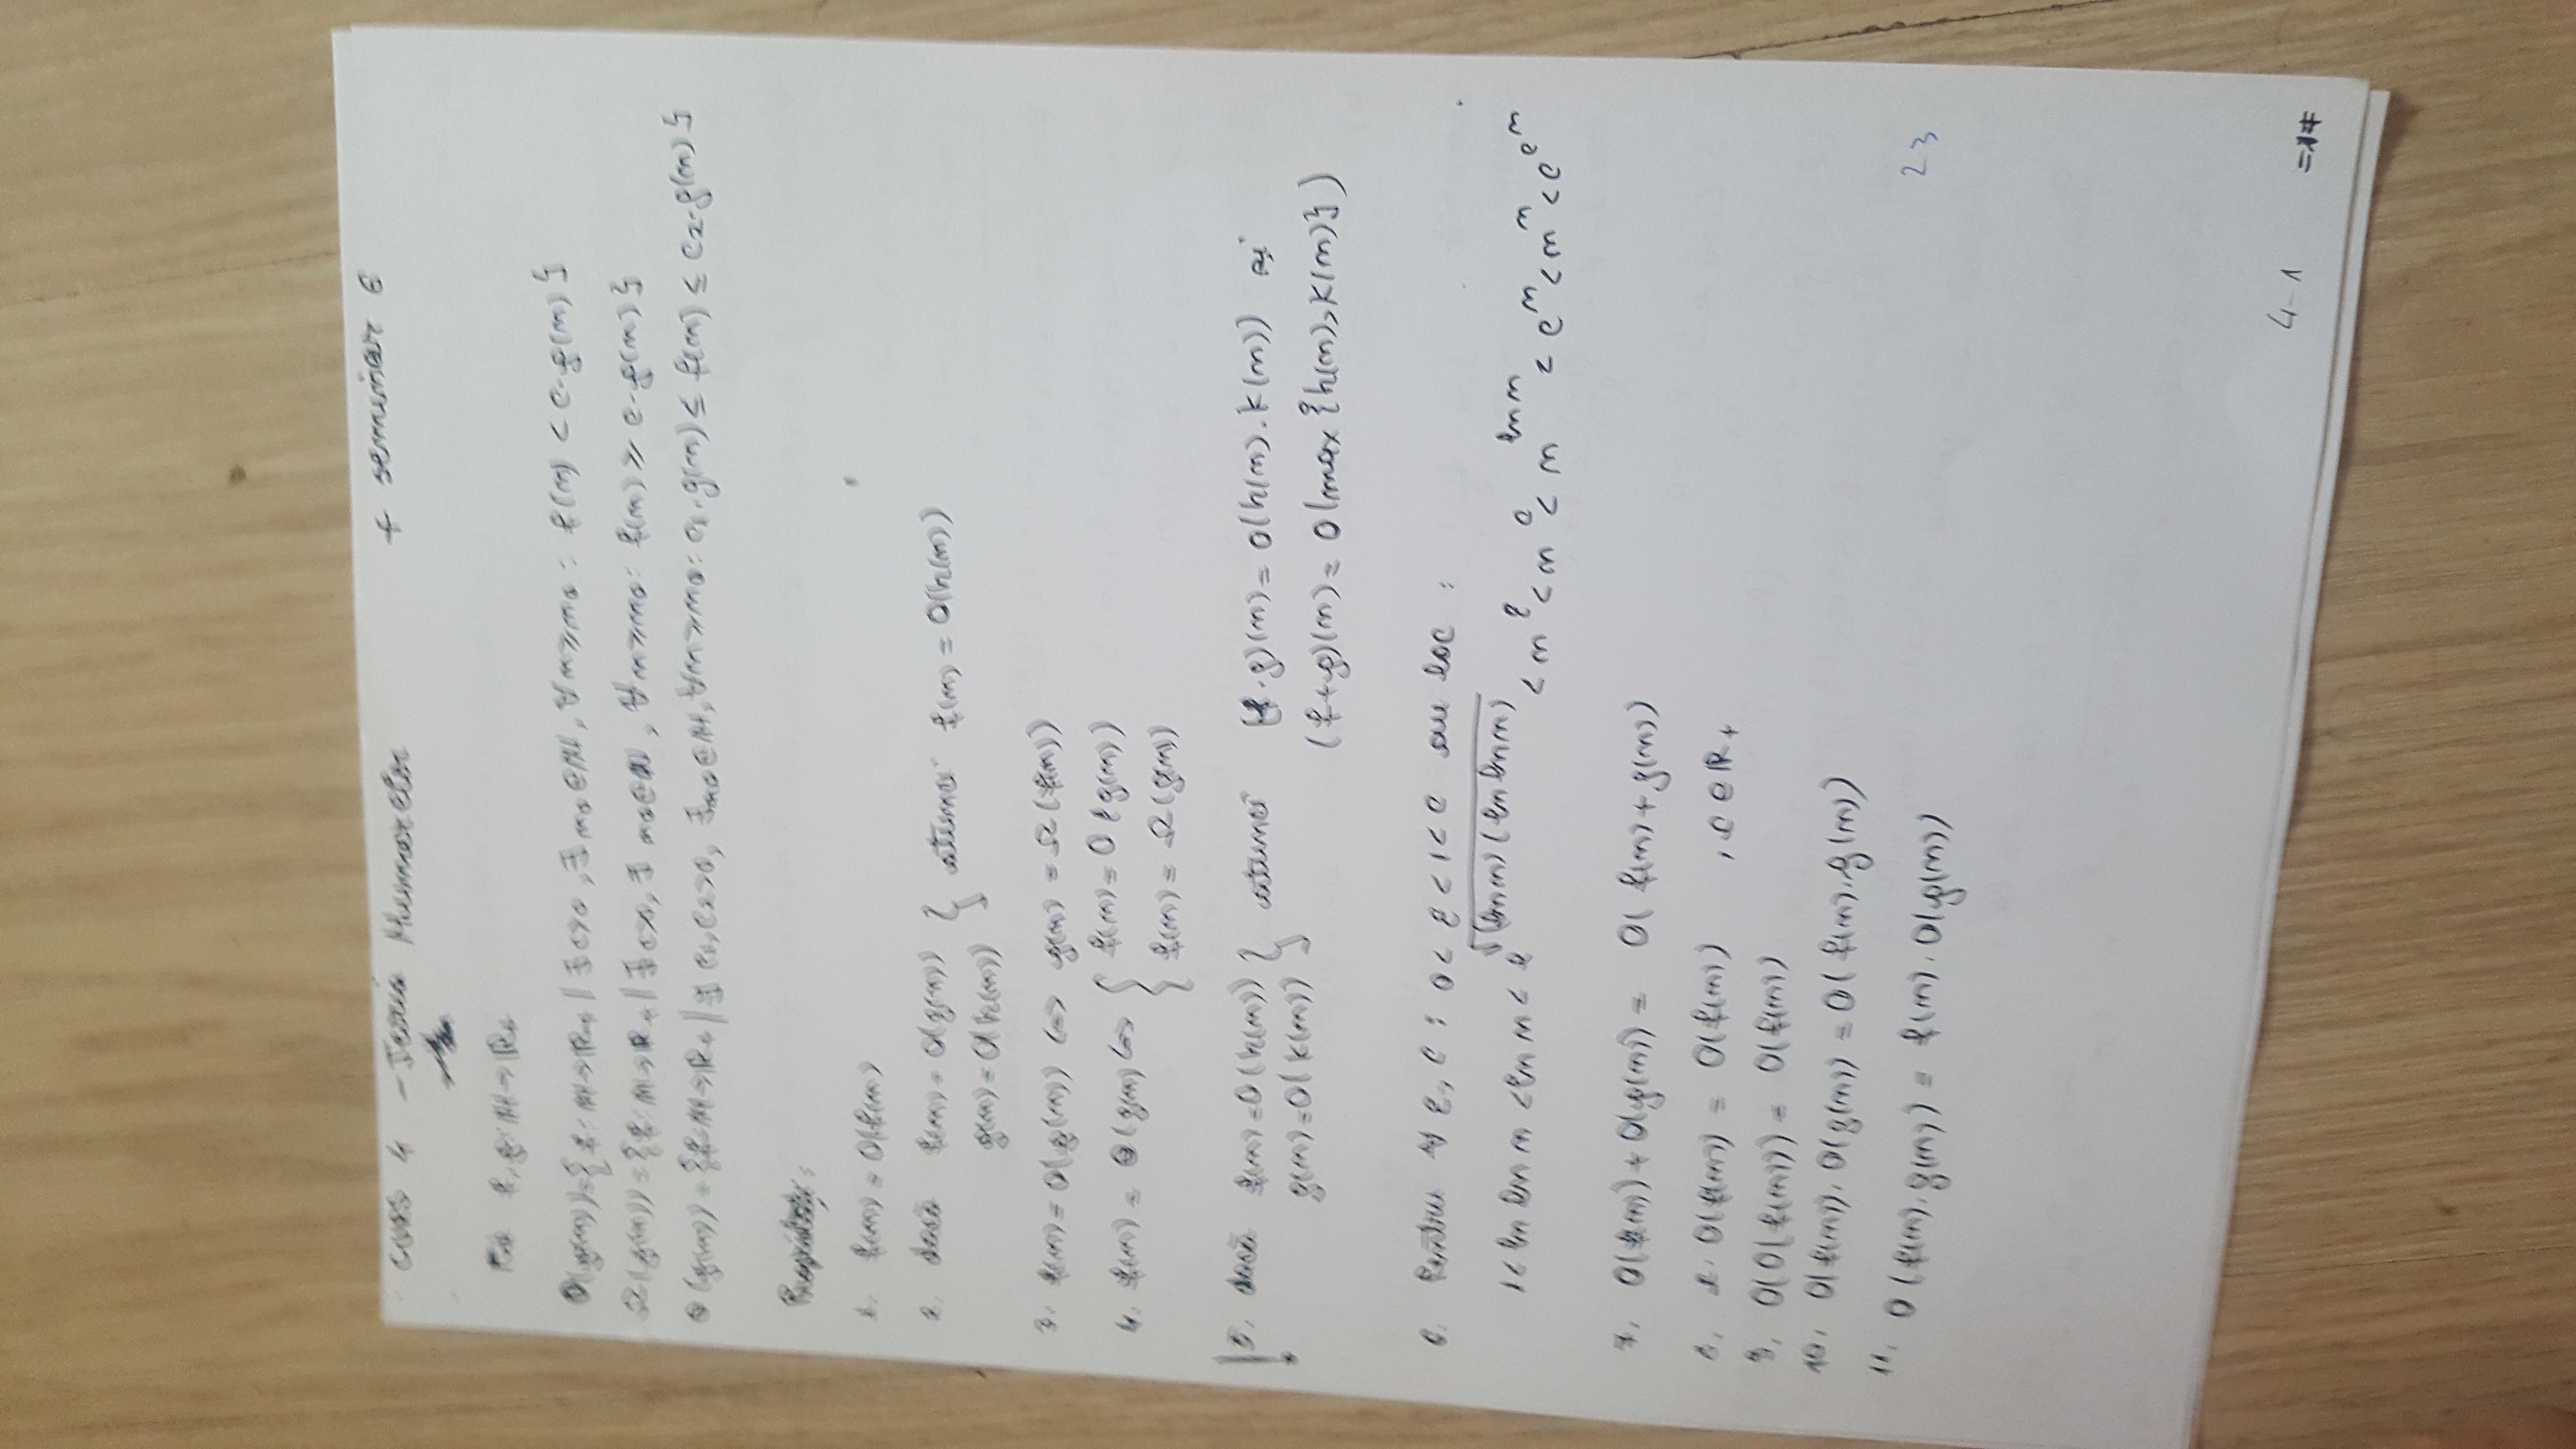 Curs 4 - Teoria Numerelor + seminar 6
Fie f, g: ℕ → ℝ₊
O(g(n)) = {f: ℕ → ℝ₊ | ∃ c>0, ∃ n₀ ∈ ℕ, ∀ n ≥ n₀ : f(n) < c·g(n)}
Ω(g(n)) = {f: ℕ → ℝ₊ | ∃ c>0, ∃ n₀ ∈ ℕ, ∀ n ≥ n₀ : f(n) ≥ c·g(n)}
Θ(g(n)) = {f: ℕ → ℝ₊ | ∃ c₁, c₂>0, ∃ n₀ ∈ ℕ, ∀ n ≥ n₀ : c₁·g(n) ≤ f(n) ≤ c₂·g(n)}
Proprietăți:
1. f(n) = O(f(n)
2. dacă f(n) = O(g(n)) } atunci f(n) = O(h(n))
g(n) = O(h(n))
3. f(n) = O(g(n)) <=> g(n) = Ω(f(n))
4. f(n) = Θ(g(n) <=> { f(n) = O(g(n))
f(n) = Ω(g(n))
! 5. dacă f(n) = O(h(n)) } atunci (f·g)(n) = O(h(n)·k(n)) și
g(n) = O(k(n)) (f+g)(n) = O(max{h(n), k(n)})
6. Pentru ∀ ε, c : 0 < ε < 1 < c au loc :
1 < ln ln n < ln n < e^√((ln n)(ln ln n)) < n^ε < n^c < n^(ln n) < c^n < n^n < c^(c^n)
7. O(f(n)) + O(g(n)) = O(f(n) + g(n))
8. c·O(f(n)) = O(f(n)) , c ∈ ℝ₊
9. O(O(f(n))) = O(f(n))
10. O(f(n))·O(g(n)) = O(f(n)·g(n))
11. O(f(n)·g(n)) = f(n)·O(g(n))
23
4-1